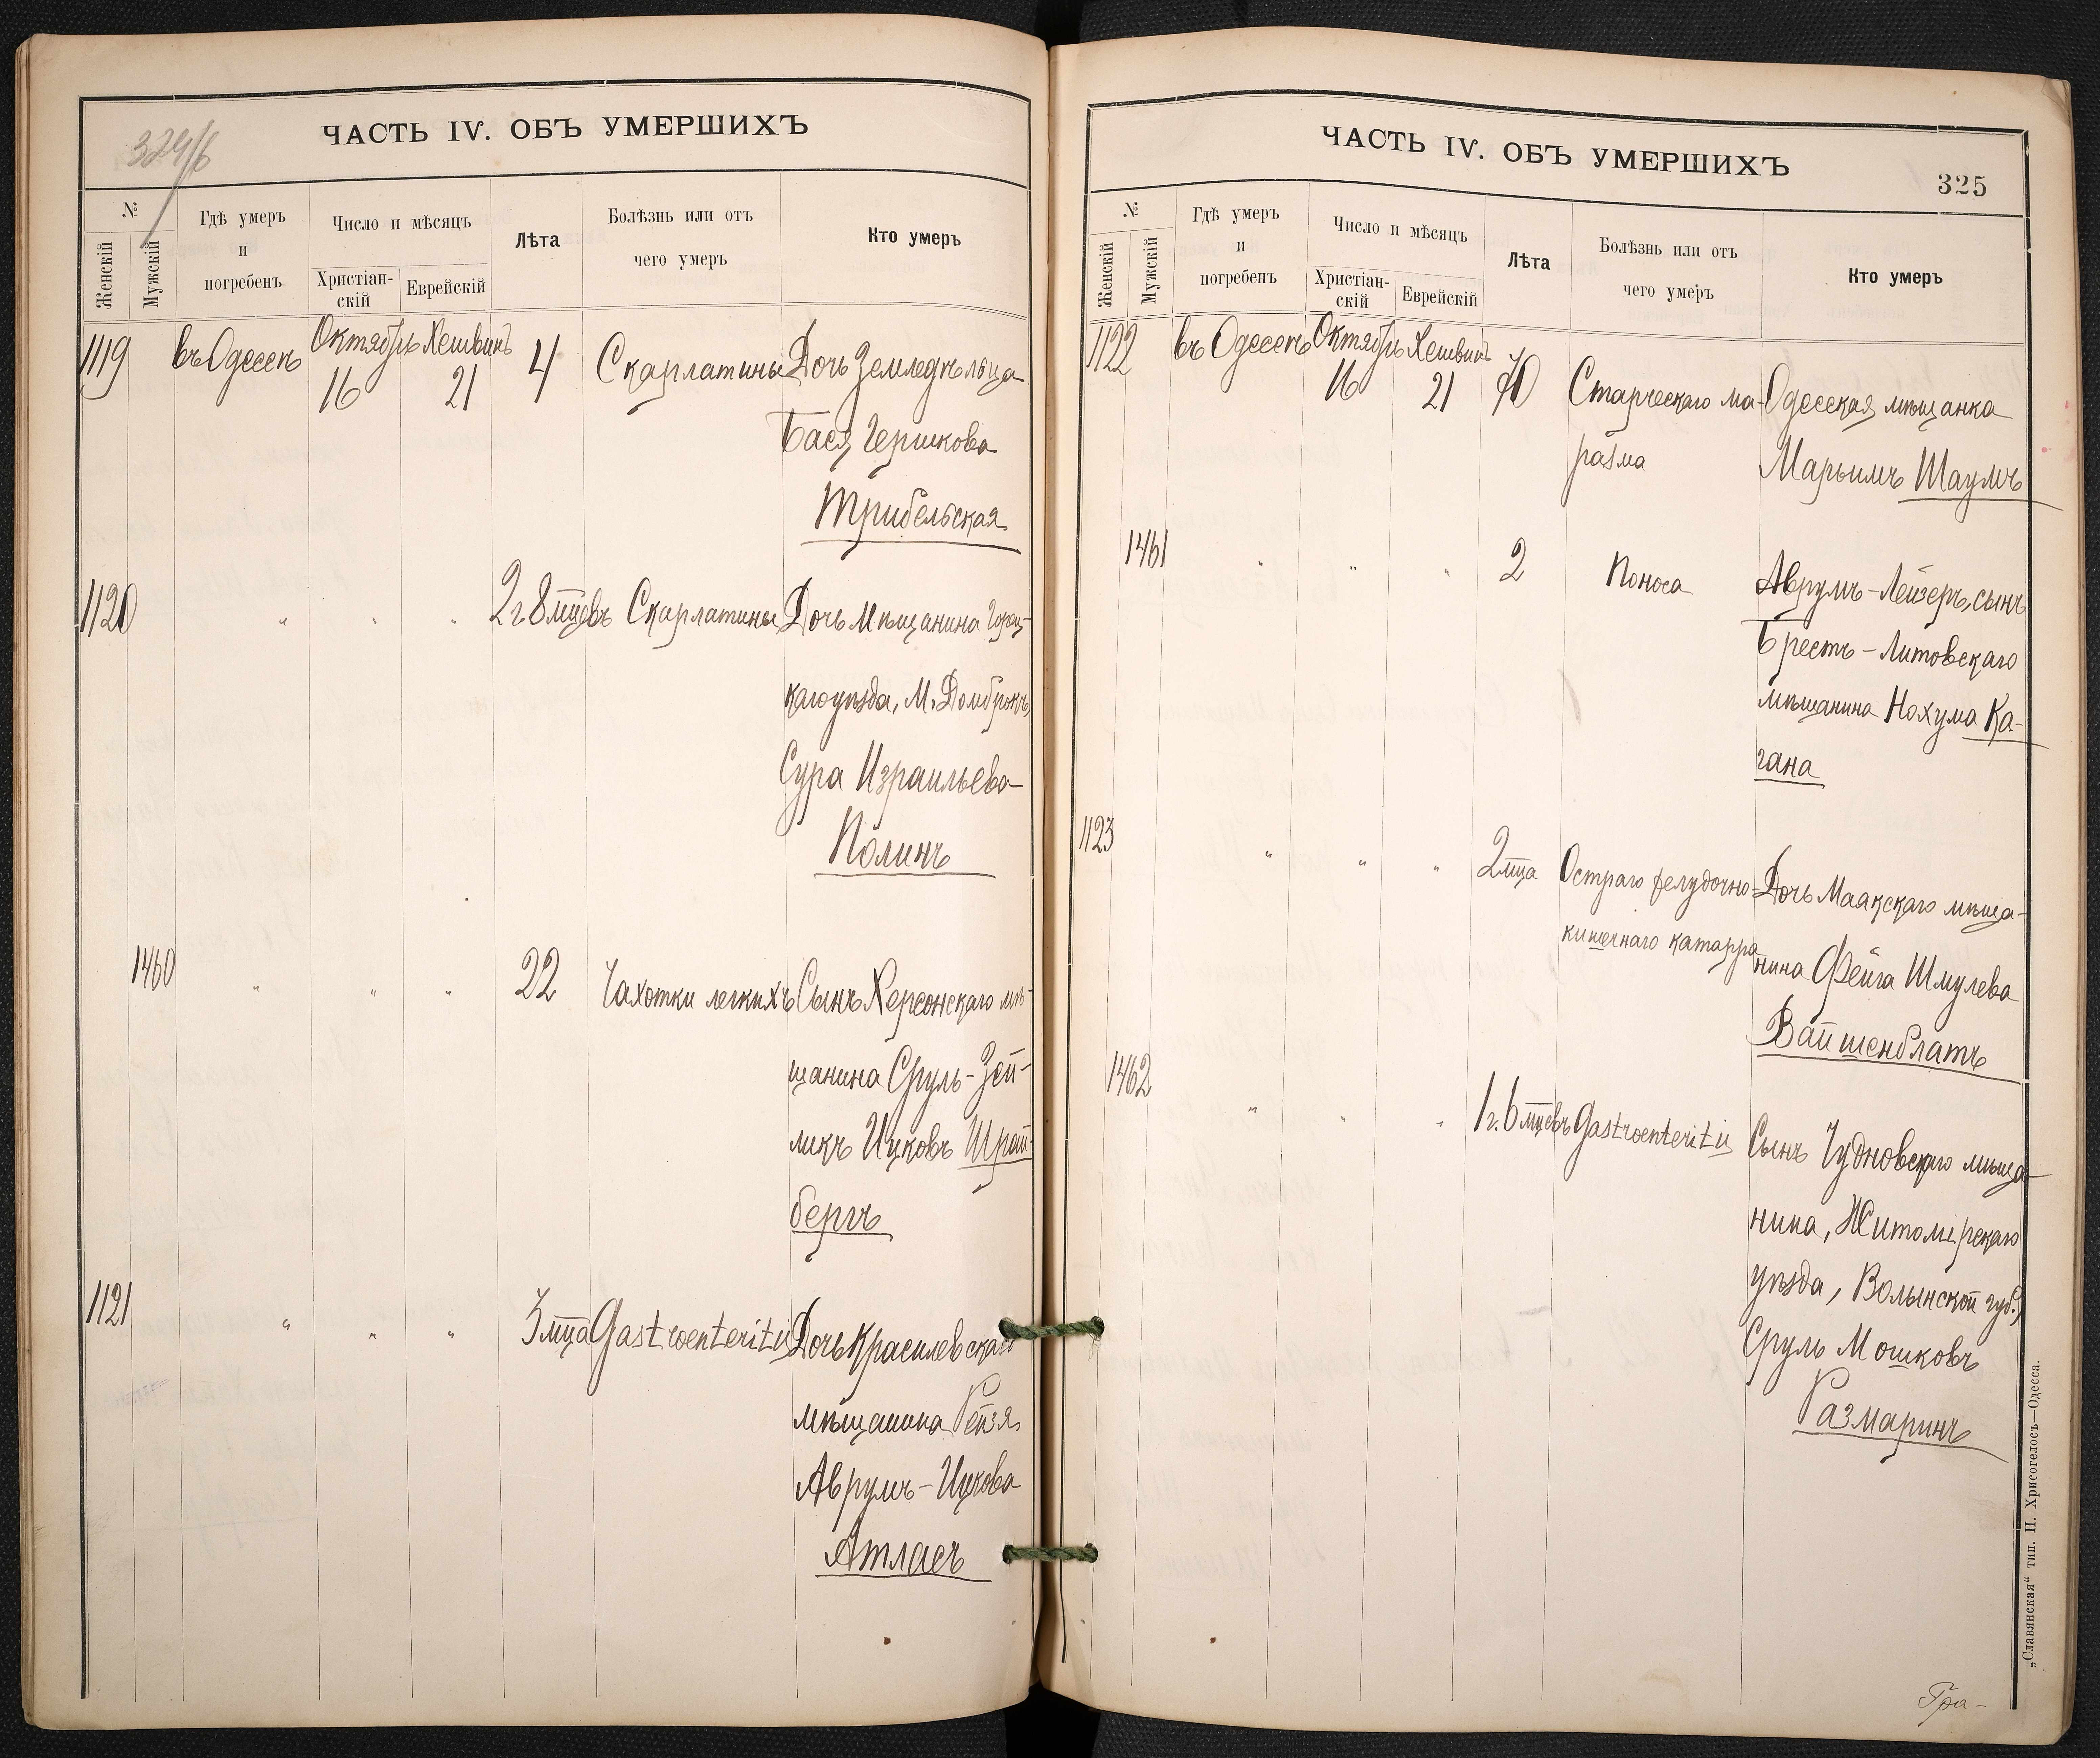 324/б
ЧАСТЬ IV. ОБЪ УМЕРШИХЪ
№
Женскій
Мужскій
Гдѣ умеръ
и
погребенъ
Число и мѣсяцъ
Христіан-
скій
Еврейскій
Лѣта
Болѣзнь или отъ
чего умеръ
Кто умеръ
1119 въ Одессѣ Октябрь Хешвинъ 4 Скарлатины Дочь Земледѣльца
16 21
Бася Гершкова
Трибельская
1120 " " " 2 г 8 мцевъ Скарлатины Дочь мѣщанина
каго уѣзда, М.
Сура Израильева
Полинъ
1460 " " " 22 Чахотки легкихъ Сынъ Херсонскаго мѣ-
щанина Сруль-Зей-
ликъ Ицковъ
бергъ
1121 " " " 3 мца Gastroenteritis Дочь Красилевскаго
мѣщанина Рейзя
Аврумъ-Ицкова
Атласъ
ЧАСТЬ IV. ОБЪ УМЕРШИХЪ
325
№
Женскій
Мужскій
Гдѣ умеръ
и
погребенъ
Число и мѣсяцъ
Христіан-
скій
Еврейскій
Лѣта
Болѣзнь или отъ
чего умеръ
Кто умеръ
1122 въ Одессѣ Октябрь Хешвинъ 70 Старческаго ма- Одесская мѣщанка
16 21
разма Марьимъ Шаумъ
1461 " " " 2 Поноса Аврумъ-Лейзеръ, сынъ
Брестъ-Литовскаго
мѣщанина Нохума Ка-
гана
1123 " " " 2 мца Остраго желудочно- Дочь Маякскаго мѣща-
кишечнаго катарра нина Фейга Шмулева
Вайшенблатъ
1462 " " " 1 г. 6 мцевъ Gastroenteritis Сынъ Чудновскаго мѣща-
нина, Житомірскаго
уѣзда, Волынской губ.,
Сруль Мошковъ
Размаринъ
„Славянская“ тип. Н. Хрисогелосъ—Одесса.
Гра-